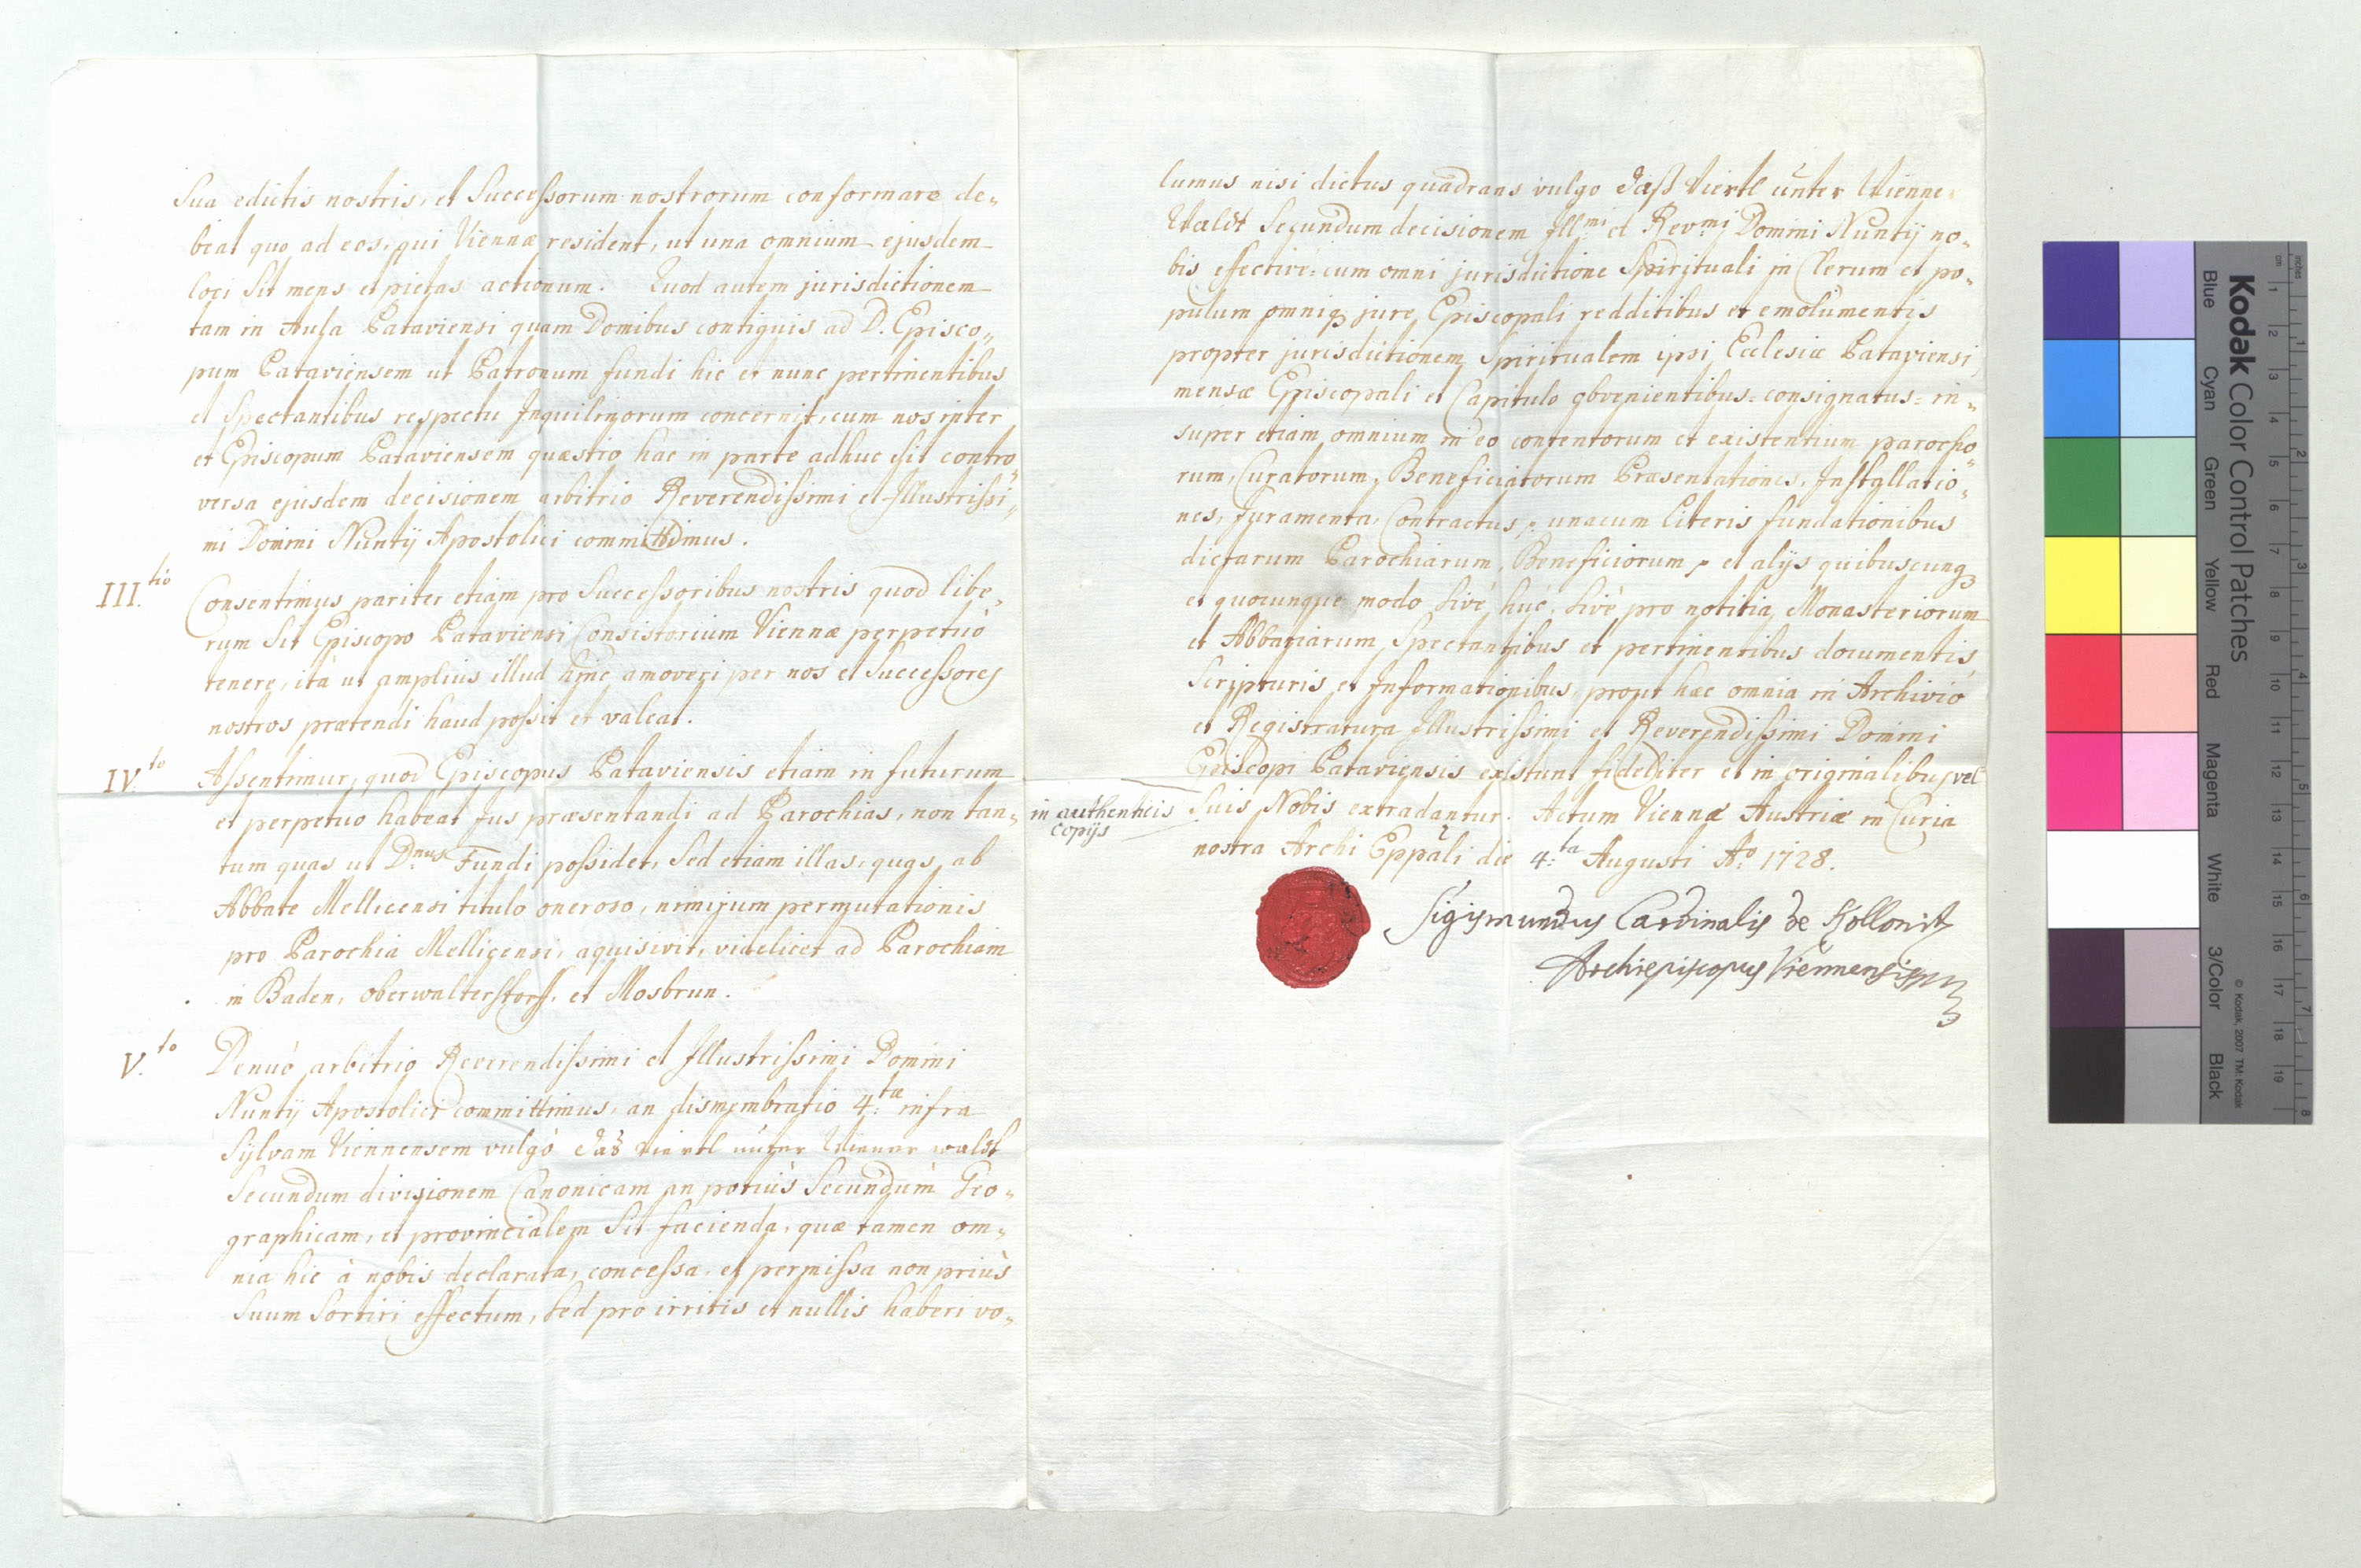 sua edictis nostris, et Successorum nostrorum conformare de„
beat quo ad eos, qui Viennæ resident, ut una omnium ejusdem
loci sit mens et pietas actionum. Quod autem jurisdictionem
tam in Aula Pataviensi quam Domibus contiguis ad D. Episco„
pum Pataviensem ut Patronum fundi hic et nunc pertinentibus
et Spectantibus respectu Inquilinorum concernit, cum nos inter
et Episcopum Pataviensem quæstio hac in parte adhuc sit contro„
versa ejusdem decisionem arbitrio Reverendissimi et Illustrissi„
mi Domini Nuntij Apostolici committimus.
III.tio Consentimus pariter etiam pro Successoribus nostris quod libe„
rum sit Episcopo Pataviensi Consistorium Viennæ perpetuò
tenere, ità ut amplius illud hinc amoveri per nos et Successores
nostros prætendi haud possit et valeat.
IV.to Assentimur, quod Episcopus Pataviensis etiam in futurum
et perpetuo habeat Jus præsentandi ad Parochias, non tan„
tum quas ut D.nus Fundi possidet, sed etiam illas, quas ab
Abbate Mellicensi titulo oneroso, nimirum permutationis
pro Parochia Mellicensi, aquisivit, videlicet ad Parochiam
in Baden, oberwalterstorff, et Mosbrun.
V.to Denuò arbitrio Reverendissimi et Illustrissimi Domini
Nuntij Apostolici committimus, an dismembratio 4:ta infra
Sylvam Viennensem vulgò das viertl unter Wienner waldt
Secundum divisionem Canonicam an potiùs Secundùm Geo„
graphicam, et provincialem sit facienda, quæ tamen om„
nia hic à nobis declarata, concessa, et permissa non priùs
suum sortiri effectum, sed pro irritis et nullis haberi vo„
lumus nisi dictus quadrans vulgo daß Viertl unter Wienner
Waldt Secundum decisionem Ill:mi et Rev:mi Domini Nuntij no„
bis effectivè: cum omni jurisdictione Spirituali in Clerum et po„
pulum omniq3 jure Episcopali redditibus et emolumentis
propter jurisdictionem Spiritualem ipsi Ecclesiæ Pataviensi
mensæ Episcopali et Capitulo obvenientibus: consignatus: in„
super etiam omnium in eo contentorum et existentium parocho„
rum, Curatorum, Beneficiatorum Præsentationes, Installatio„
nes, Juramenta, Contractus, unacum literis fundationibus
dictarum Parochiarum, Beneficiorum et alijs quibuscunq3
et quocunque modo sivè huc, sivè pro notitia Monasteriorum
et Abbatiarum Spectantibus et pertinentibus documentis,
Scripturis et Informationibus, prout hæc omnia in Archivio
et Registratura Illustrissimi et Reverendissimi Domini
Episcopi Pataviensis existunt fideliter et in originalibus, vel
in authenticis
copijs
suis Nobis extradantur. Actum Viennæ Austriæ in Curia
nostra Archi Eppâli die 4:ta Augusti Aº 1728.
Sigismundus Cardinalis de Kollonitz
Archiepiscopus Viennensis
Kodak Color Control Patches
Blue Cyan Green Yellow Red Magenta White 3/Color Black
© Kodak, 2007 TM: Kodak
inches 1 2 3 4 5 6 7 8
cm 1 2 3 4 5 6 7 8 9 10 11 12 13 14 15 16 17 18 19